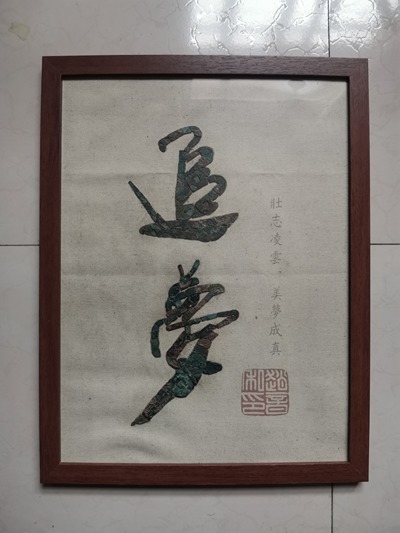 追夢
壯志凌雲，美夢成真